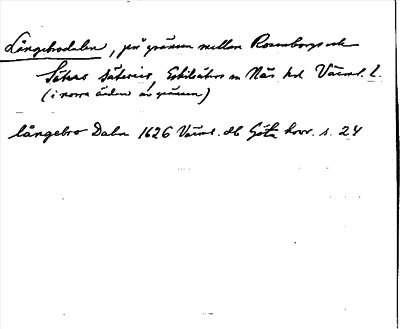 Långebrodalen, på gränsen mellan Rosenborgs och
Säkas säterier, Eskilsäters sn Näs hd Värml. L.
(i norra änden av gränsen)
långebro Dahn 1626 Värml. db Göta hovr. s. 24